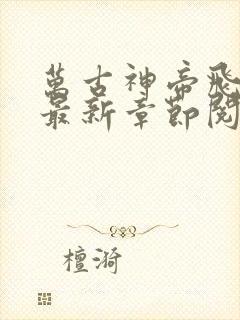 萬古神帝飛
最新章節閱
檀漪